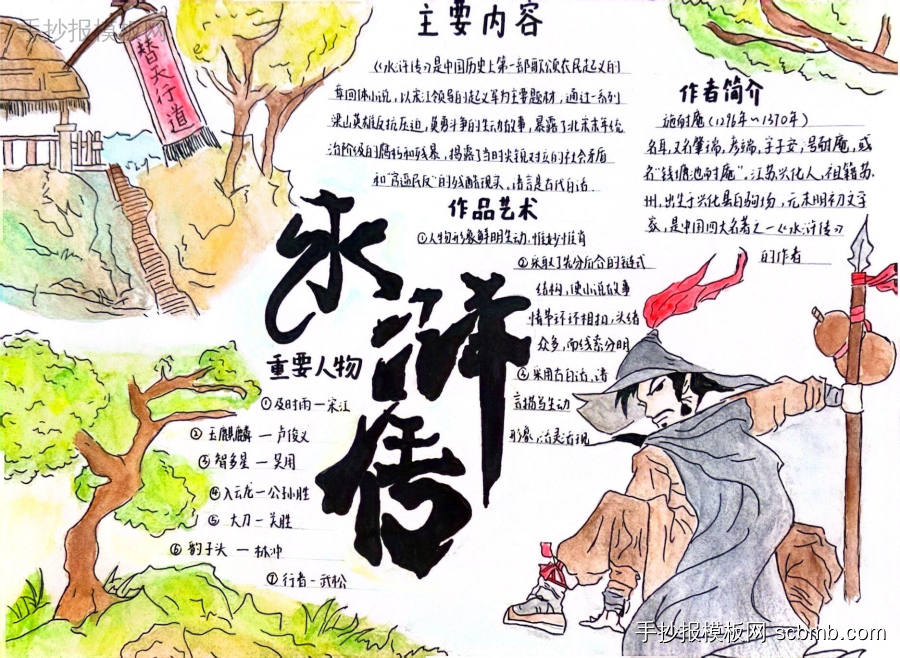 手抄报模板网
替天行道
主要内容
《水浒传》是中国历史上第一部歌颂农民起义的
章回体小说，以宋江领导的起义军为主要题材，通过一系列
梁山英雄反抗压迫、英勇斗争的生动故事，暴露了北宋末年统
治阶级的腐朽和残暴，揭露了当时尖锐对立的社会矛盾
和“官逼民反”的残酷现实，语言是古代白话
作者简介
施耐庵(1296年~1370年)
名耳，又名肇瑞、彦端，字子安，号耐庵，或
名“钱塘施耐庵”，江苏兴化人，祖籍苏
州，出生于兴化县白驹场，元末明初文学
家，是中国四大名著之一《水浒传》
的作者
作品艺术
①人物形象鲜明生动，惟妙惟肖
②采取了先分后合的链式
结构，使小说故事
情节环环相扣，头绪
众多，而线索分明
④采用古白话，语
言描写生动
形象，活灵活现
水浒传
重要人物
①及时雨—宋江
②玉麒麟—卢俊义
③智多星—吴用
④入云龙—公孙胜
⑤大刀—关胜
⑥豹子头—林冲
⑦行者—武松
手抄报模板网 scbmb.com